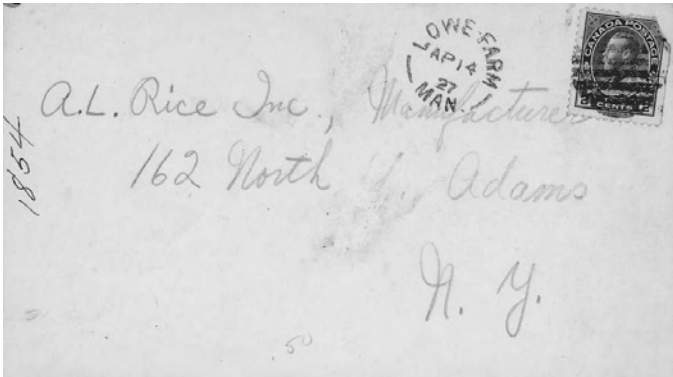 LOWE FARM
AP 14
27
MAN.
CANADA POSTAGE
CENTS
A.L. Rice Inc., Manufacturers
162 North
Adams
N. Y.
1854
50